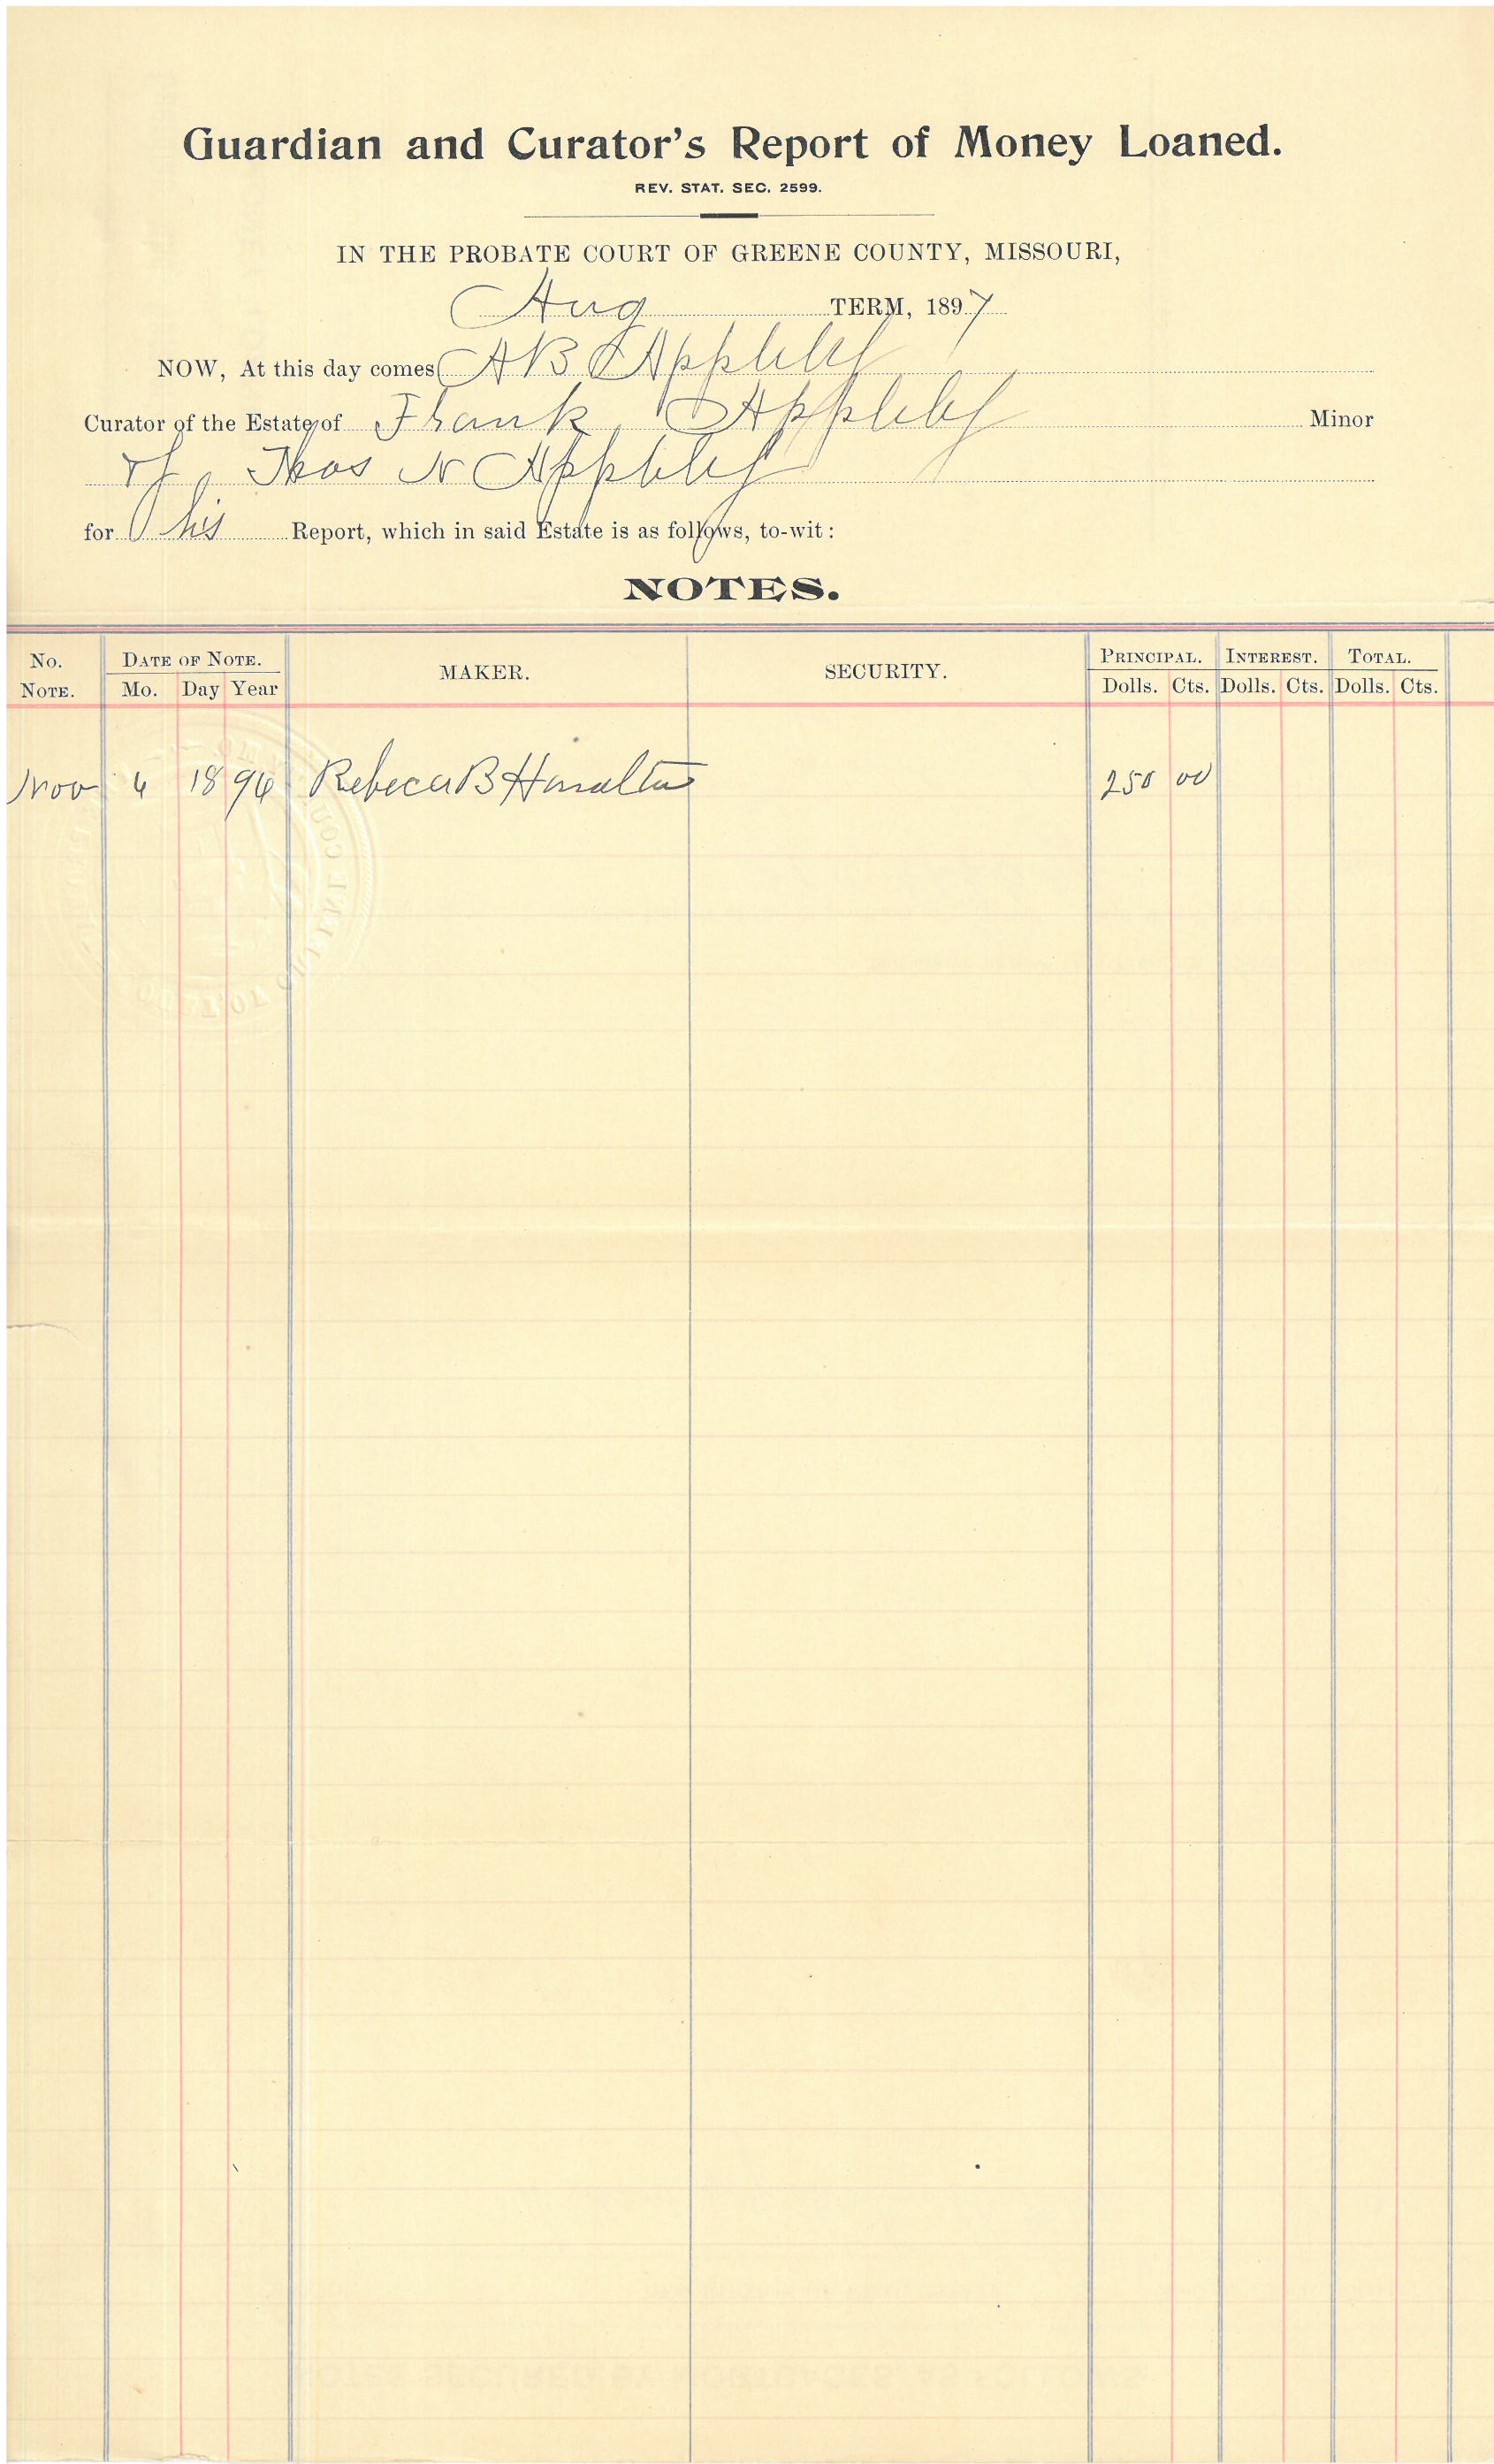 Guardian and Curator's Report of Money Loaned.
REV. STAT. SEC. 2599.
IN THE PROBATE COURT OF GREENE COUNTY, MISSOURI,
Aug TERM, 1897
NOW, At this day comes A B Appleby
Curator of the Estate of Frank Appleby Minor
of Thos N Appleby
for his Report, which in said Estate is as follows, to-wit:
NOTES.
No. NOTE. DATE OF NOTE. Mo. Day Year MAKER. SECURITY. PRINCIPAL. Dolls. Cts. INTEREST. Dolls. Cts. TOTAL. Dolls. Cts.
Nov 6 1896 Rebeca B 250 00